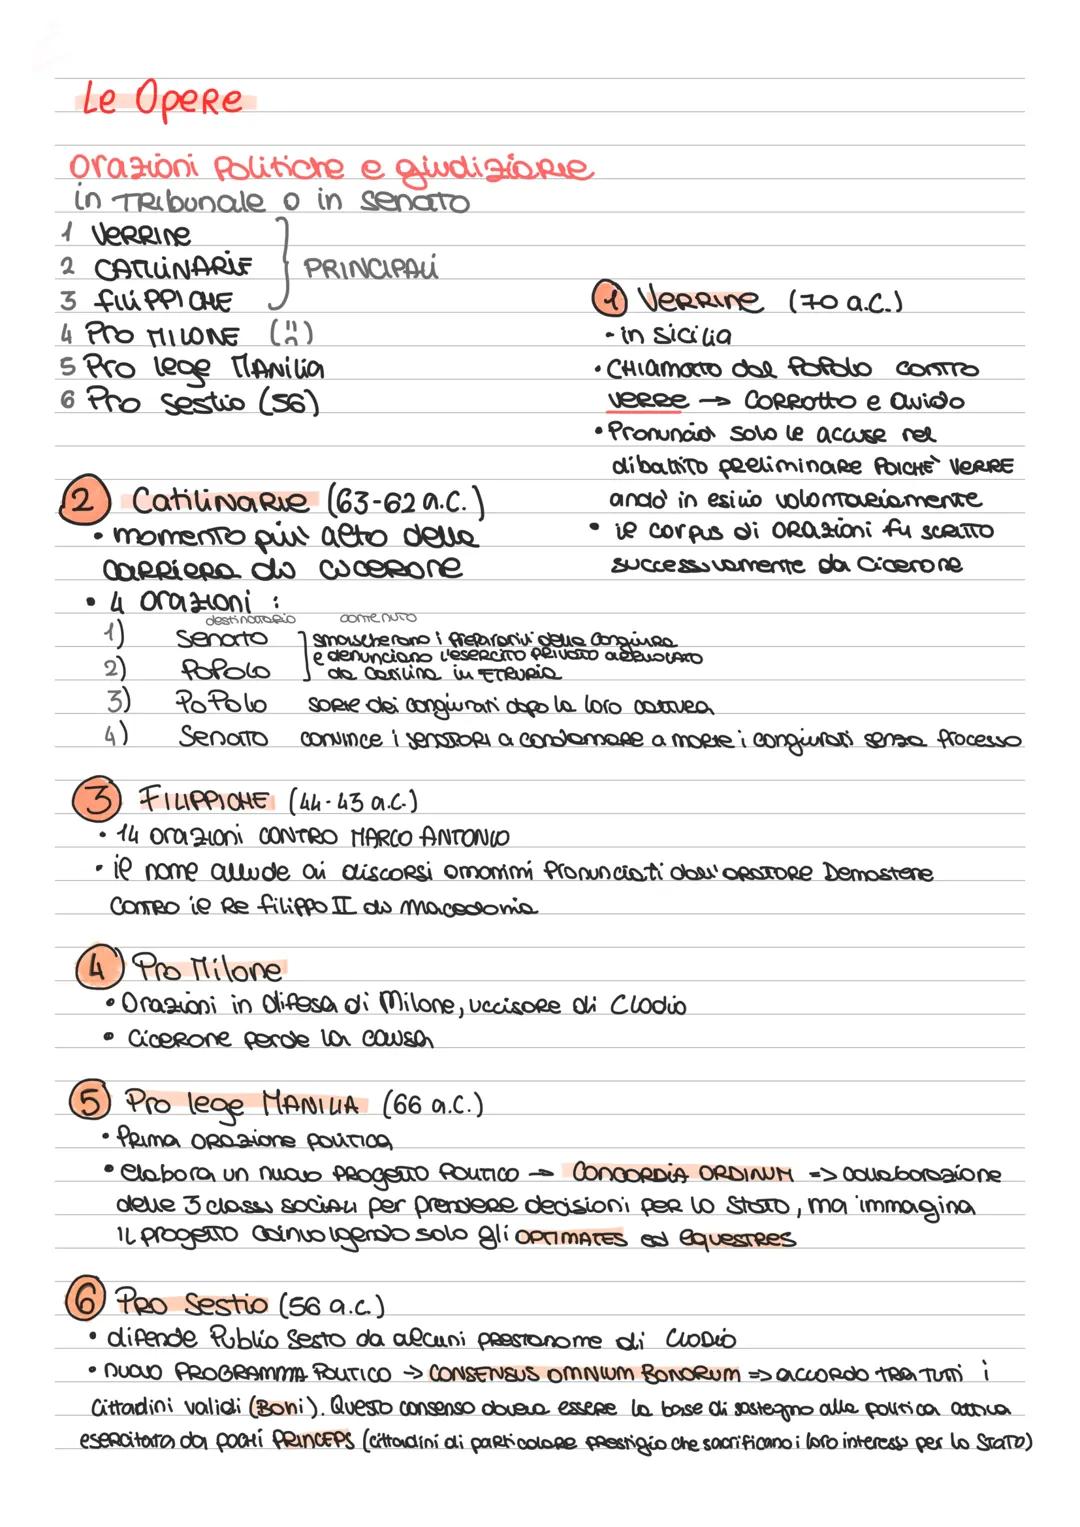 Le Opere
Orazioni Politiche e giudiziarie
in Tribunale o in senato
1 VERRINE
2 CATILINARIE } PRINCIPALI
3 FILIPPICHE
4 Pro MILONE (¨)
5 Pro lege MANilia
6 Pro Sestio (56)
1 VERRINE (70 a.C.)
- in Sicilia
• CHIAMATO dal POPOLO CONTRO
VERRE → CORROTTO e avido
• Pronunciò solo le accuse nel
dibattito preliminare POICHE' VERRE
ando' in esilio volontariamente
• il corpus di ORAZIONI fu scritto
successivamente da Cicerone
2 Catilinarie (63-62 a.C.)
• momento piu' alto della
carriera di cicerone
• 4 orazioni :
destinatario contenuto
1) Senato smascherano i preparativi della congiura
e denunciano l'esercito privato arruolato
2) POPOLO da Catilina in ETRURIA
3) POPOLO sorte dei congiurati dopo la loro cattura
4) Senato convince i senatori a condannare a morte i congiurati senza processo
3 FILIPPICHE (44-43 a.C.)
• 14 orazioni CONTRO MARCO ANTONIO
• il nome allude ai discorsi omonimi Pronunciati dall'ORATORE Demostene
CONTRO il Re filippo II di Macedonia
4 Pro Milone
• Orazioni in difesa di Milone, uccisore di Clodio
• Cicerone perde la causa
5 Pro lege MANILIA (66 a.C.)
• Prima orazione politica
• elabora un nuovo PROGETTO POLITICO → CONCORDIA ORDINUM => collaborazione
delle 3 classi sociali per prendere decisioni per lo Stato, ma immagina
IL progetto coinvolgendo solo gli OPTIMATES ed EQUESTRES
6 PRO Sestio (56 a.C.)
• difende Publio Sesto da alcuni prestanome di CLODIO
• nuovo PROGRAMMA POLITICO → CONSENSUS OMNIUM BONORUM => ACCORDO TRA TUTTI i
Cittadini validi (Boni). Questo consenso doveva essere la base di sostegno alla politica attiva
esercitata da pochi PRINCEPS (cittadini di particolare prestigio che sacrificano i loro interessi per lo Stato)